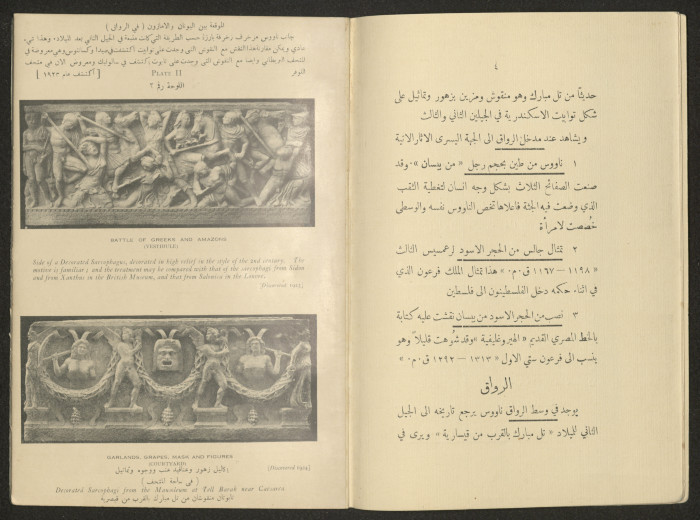 الموقعة بين اليونان والامازون ( في الرواق )
جانب ناووس مزخرف زخرفة بارزة حسب الطريقة التي كانت متبعة في الجيل الثاني بعد الميلاد . وهذا شيء
عادي ويمكن مقارنة هذا النقش مع النقوش التي وجدت على توابيت اكتشفت في صيدا وكسانثوس وهي معروضة في
المتحف البريطاني وايضا مع النقوش التي وجدت على تابوت اكتشف في سالونيك ومعروض الآن في متحف
اللوفر [ اكتشف عام ١٩٢٣ ]
PLATE II
اللوحة رقم ٢
BATTLE OF GREEKS AND AMAZONS
(VESTIBULE)
Side of a Decorated Sarcophagus, decorated in high relief in the style of the 2nd century. The
motive is familiar; and the treatment may be compared with that of the sarcophagi from Sidon
and from Xanthus in the British Museum, and that from Salonica in the Louvre.
[Discovered 1923]
GARLANDS, GRAPES, MASK AND FIGURES
(COURTYARD)
[Discovered 1924]
اكاليل زهور وعناقيد عنب ووجوه وتماثيل
( في ساحة المتحف )
Decorated Sarcophagi from the Mausoleum at Tell Barak near Caesarea
تابوتان منقوشان من تل مبارك بالقرب من قيصرية
٤
حديثاً من تل مبارك وهو منقوش ومزين بزهور وتماثيل على
شكل توابيت الاسكندرية في الجيلين الثاني والثالث
ويشاهد عند مدخل الرواق الى الجهة اليسرى الآثار الآتية
١ ناووس من طين بحجم رجل « من بيسان » . وقد
صنعت الصفائح الثلاث بشكل وجه انسان لتغطية الثقب
الذي وضعت فيه الجثة فاعلاها تخص الناووس نفسه والوسطى
خُصصت لامرأة
٢ تمثال جالس من الحجر الاسود لرعمسيس الثالث
« ١١٩٨ — ١١٦٧ ق . م . » هذا تمثال الملك فرعون الذي
في اثناء حكمه دخل الفلسطينون الى فلسطين
٣ نصب من الحجر الاسود من بيسان نقشت عليه كتابة
بالخط المصري القديم « الهيروغليفية » وقد شُوهت قليلاً وهو
ينسب الى فرعون ستي الاول « ١٣١٣ — ١٢٩٢ ق . م . »
الرواق
يوجد في وسط الرواق ناووس يرجع تاريخه الى الجيل
الثاني للميلاد « تل مبارك بالقرب من قيسارية » ويرى في